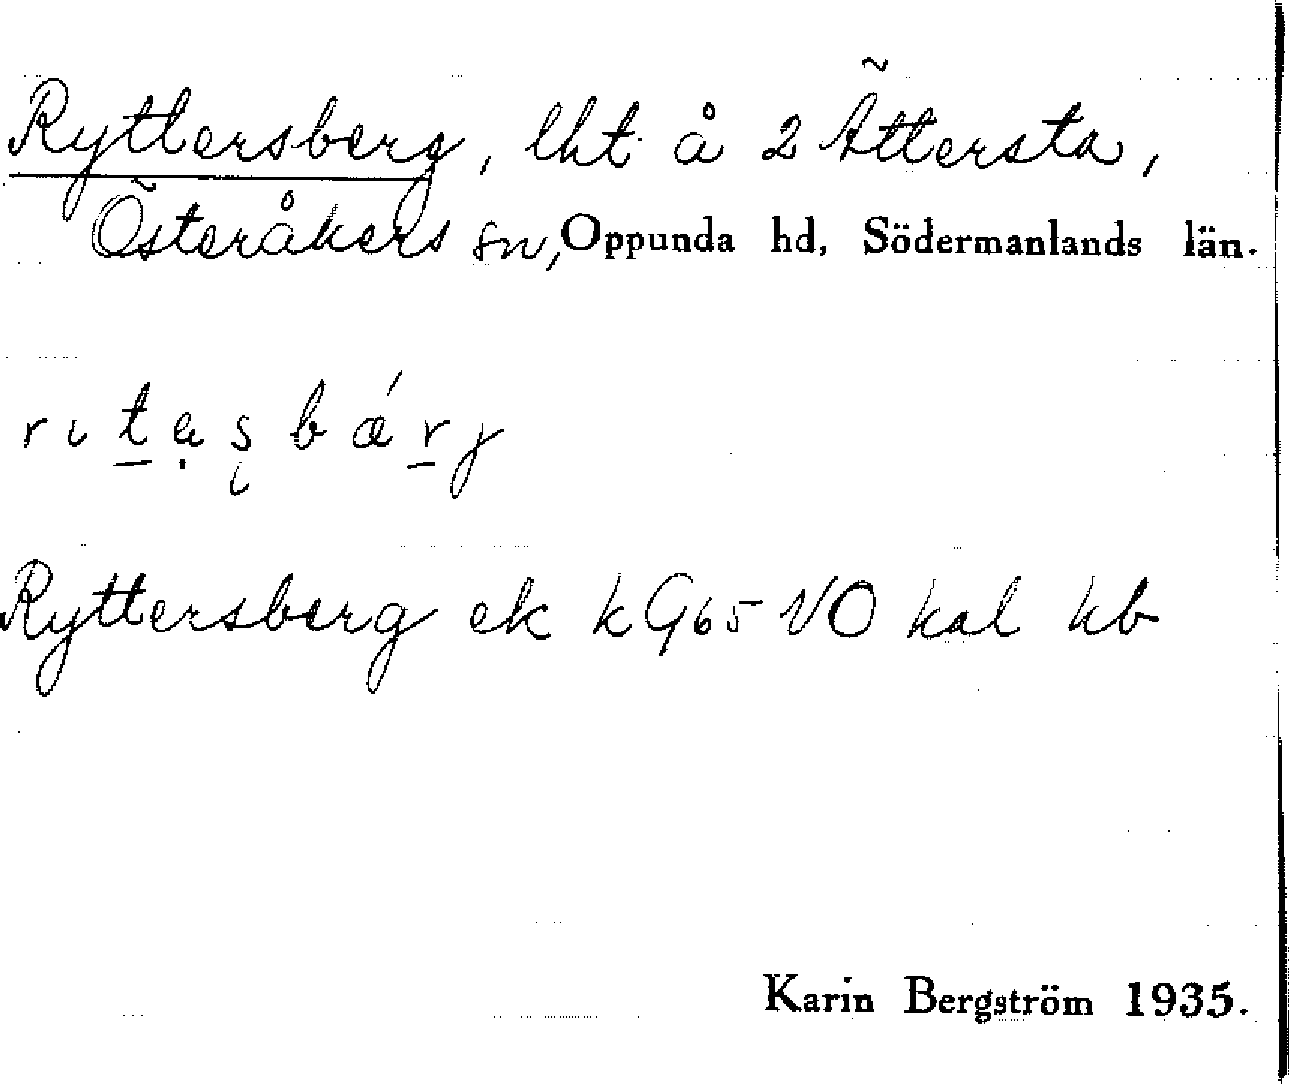 Ryttersberg, lht å 2 Ättersta,
Österåkers sn, Oppunda hd, Södermanlands län.
Ryttersberg ek k G65 VO kal kb
Karin Bergström 1935.